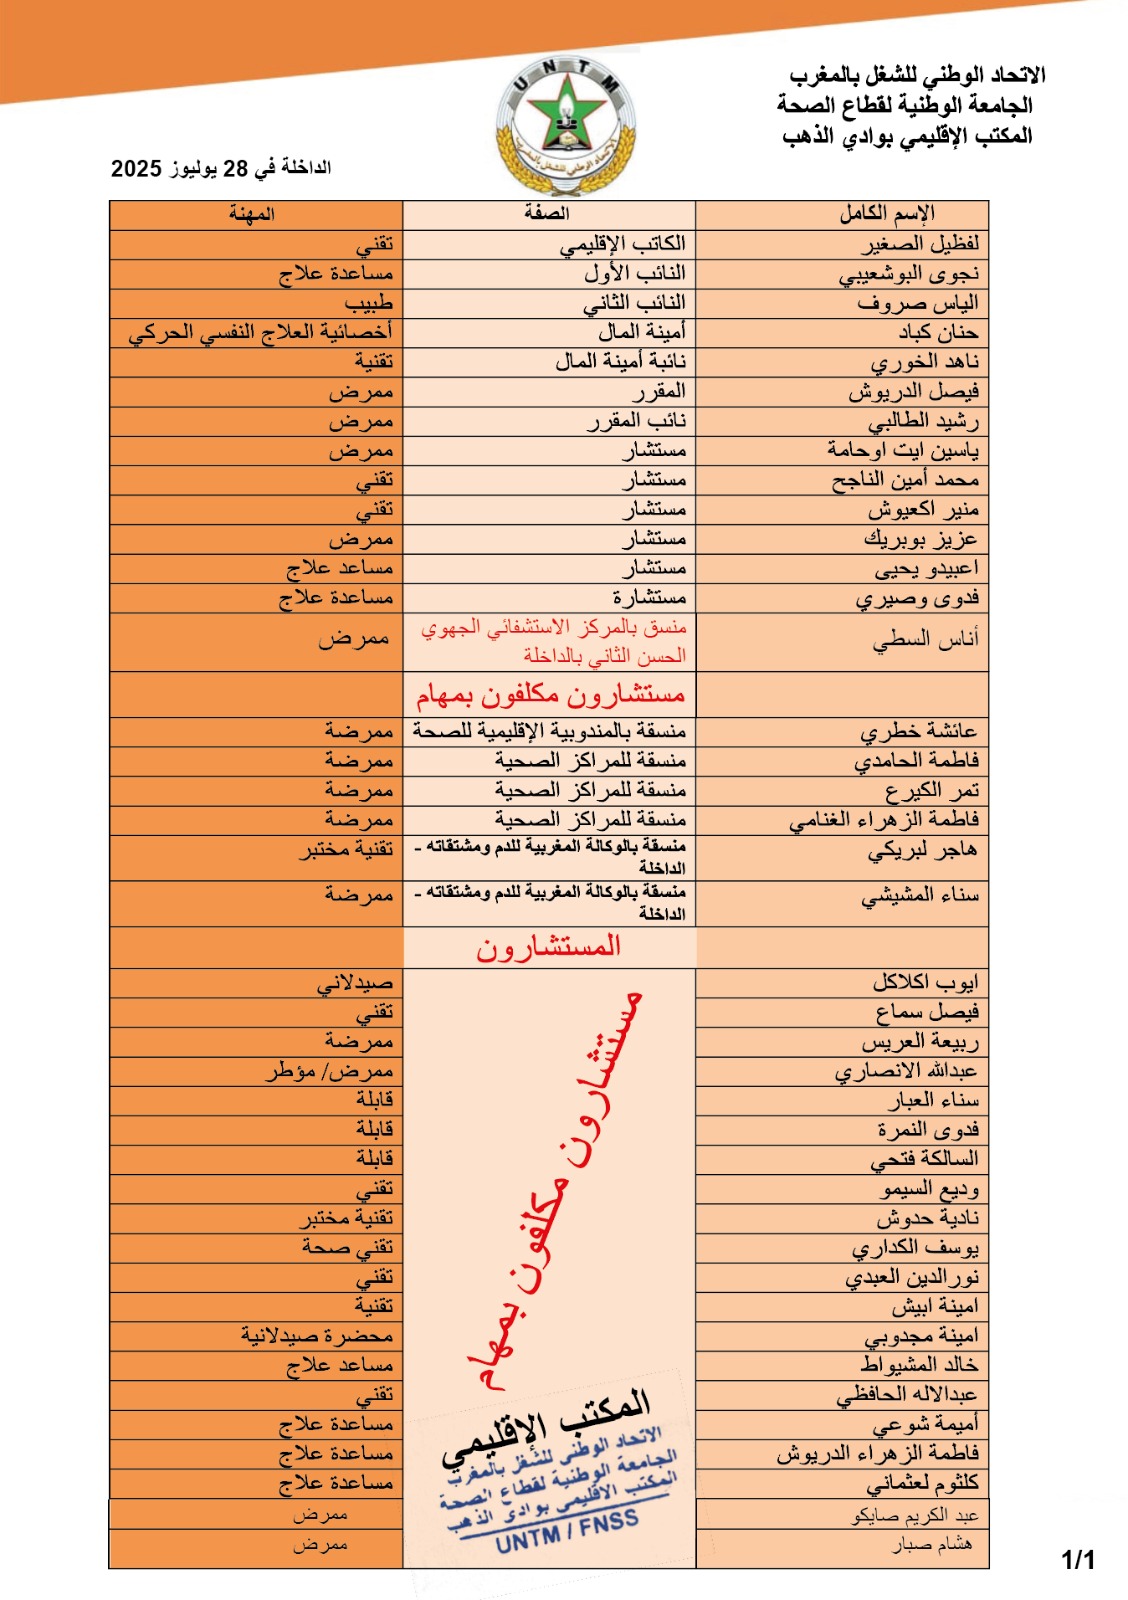 الاتحاد الوطني للشغل بالمغرب
الجامعة الوطنية لقطاع الصحة
المكتب الإقليمي بوادي الذهب
UNTM
الاتحاد الوطني للشغل بالمغرب
الداخلة في 28 يوليوز 2025
الإسم الكامل الصفة المهنة
لفظيل الصغير الكاتب الإقليمي تقني
نجوى البوشعيبي النائب الأول مساعدة علاج
الياس صروف النائب الثاني طبيب
حنان كباد أمينة المال أخصائية العلاج النفسي الحركي
ناهد الخوري نائبة أمينة المال تقنية
فيصل الدريوش المقرر ممرض
رشيد الطالبي نائب المقرر ممرض
ياسين ايت اوحامة مستشار ممرض
محمد أمين الناجح مستشار تقني
منير اكعيوش مستشار تقني
عزيز بوبريك مستشار ممرض
اعبيدو يحيى مستشار مساعد علاج
فدوى وصيري مستشارة مساعدة علاج
أناس السطي منسق بالمركز الاستشفائي الجهوي ممرض
الحسن الثاني بالداخلة
مستشارون مكلفون بمهام
عائشة خطري منسقة بالمندوبية الإقليمية للصحة ممرضة
فاطمة الحامدي منسقة للمراكز الصحية ممرضة
تمر الكيرع منسقة للمراكز الصحية ممرضة
فاطمة الزهراء الغنامي منسقة للمراكز الصحية ممرضة
هاجر لبريكي منسقة بالوكالة المغربية للدم ومشتقاته - تقنية مختبر
الداخلة
سناء المشيشي منسقة بالوكالة المغربية للدم ومشتقاته - ممرضة
الداخلة
المستشارون
ايوب اكلاكل صيدلاني
فيصل سماع تقني
ربيعة العريس ممرضة
عبدالله الانصاري ممرض/ مؤطر
سناء العبار قابلة
فدوى النمرة قابلة
السالكة فتحي قابلة
وديع السيمو تقني
نادية حدوش تقنية مختبر
يوسف الكداري تقني صحة
نورالدين العبدي تقني
امينة ابيش تقنية
امينة مجدوبي محضرة صيدلانية
خالد المشيواط مساعد علاج
عبدالاله الحافظي تقني
أميمة شوعي مساعدة علاج
فاطمة الزهراء الدريوش مساعدة علاج
كلثوم لعثماني مساعدة علاج
عبد الكريم صايكو ممرض
هشام صبار ممرض
مستشارون مكلفون بمهام
المكتب الإقليمي
الاتحاد الوطني للشغل بالمغرب
الجامعة الوطنية لقطاع الصحة
المكتب الاقليمي بوادي الذهب
UNTM / FNSS
1/1